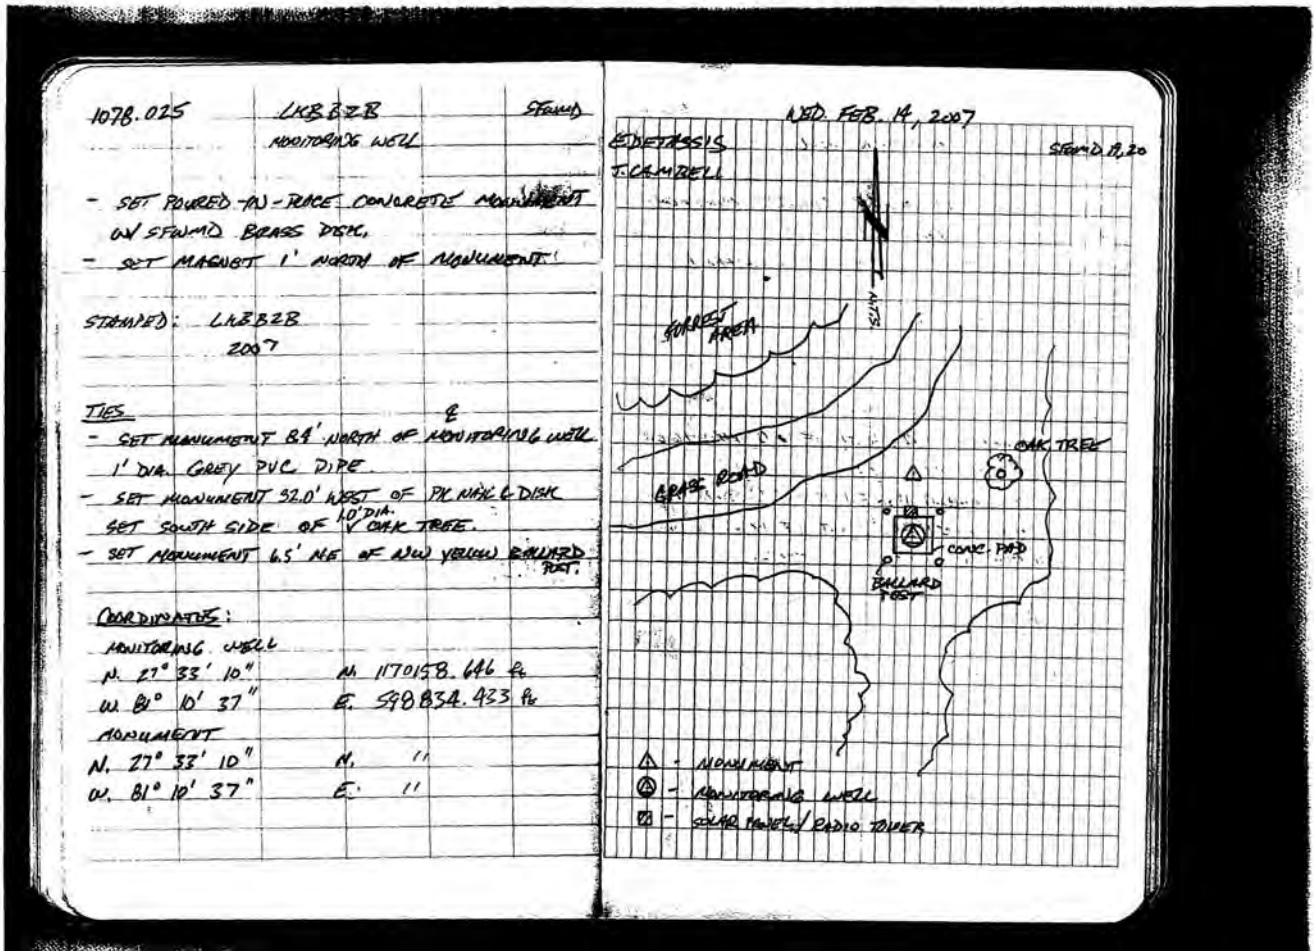 1078.025 LKBBZB SFWMD
MONITORING WELL
- SET POURED-IN-PLACE CONCRETE MONUMENT
W/ SFWMD BRASS DISK.
- SET MAGNET 1' NORTH OF MONUMENT.
STAMPED: LKBBZB
2007
TIES
℄
- SET MONUMENT 8.4' NORTH OF MONITORING WELL
1' DIA. GREY PVC PIPE.
- SET MONUMENT 32.0' WEST OF PK NAIL & DISK
1.0' DIA.
SET SOUTH SIDE OF V OAK TREE.
- SET MONUMENT 6.5' NE OF NW YELLOW BALLARD
POST.
COORDINATES:
MONITORING WELL
N. 27° 33' 10" N. 1170158.646 ft
W. 81° 10' 37" E. 598834.433 ft
MONUMENT
N. 27° 33' 10" N. "
W. 81° 10' 37" E. "
WED. FEB. 14, 2007
E.DETASSIS SFWMD 19,20
J.CAMBELL
N.T.S.
FORREST
AREA
GRASS ROAD
OAK TREE
CONC. PAD
BALLARD
POST
- MONUMENT
- MONITORING WELL
- SOLAR PANEL / RADIO TOWER